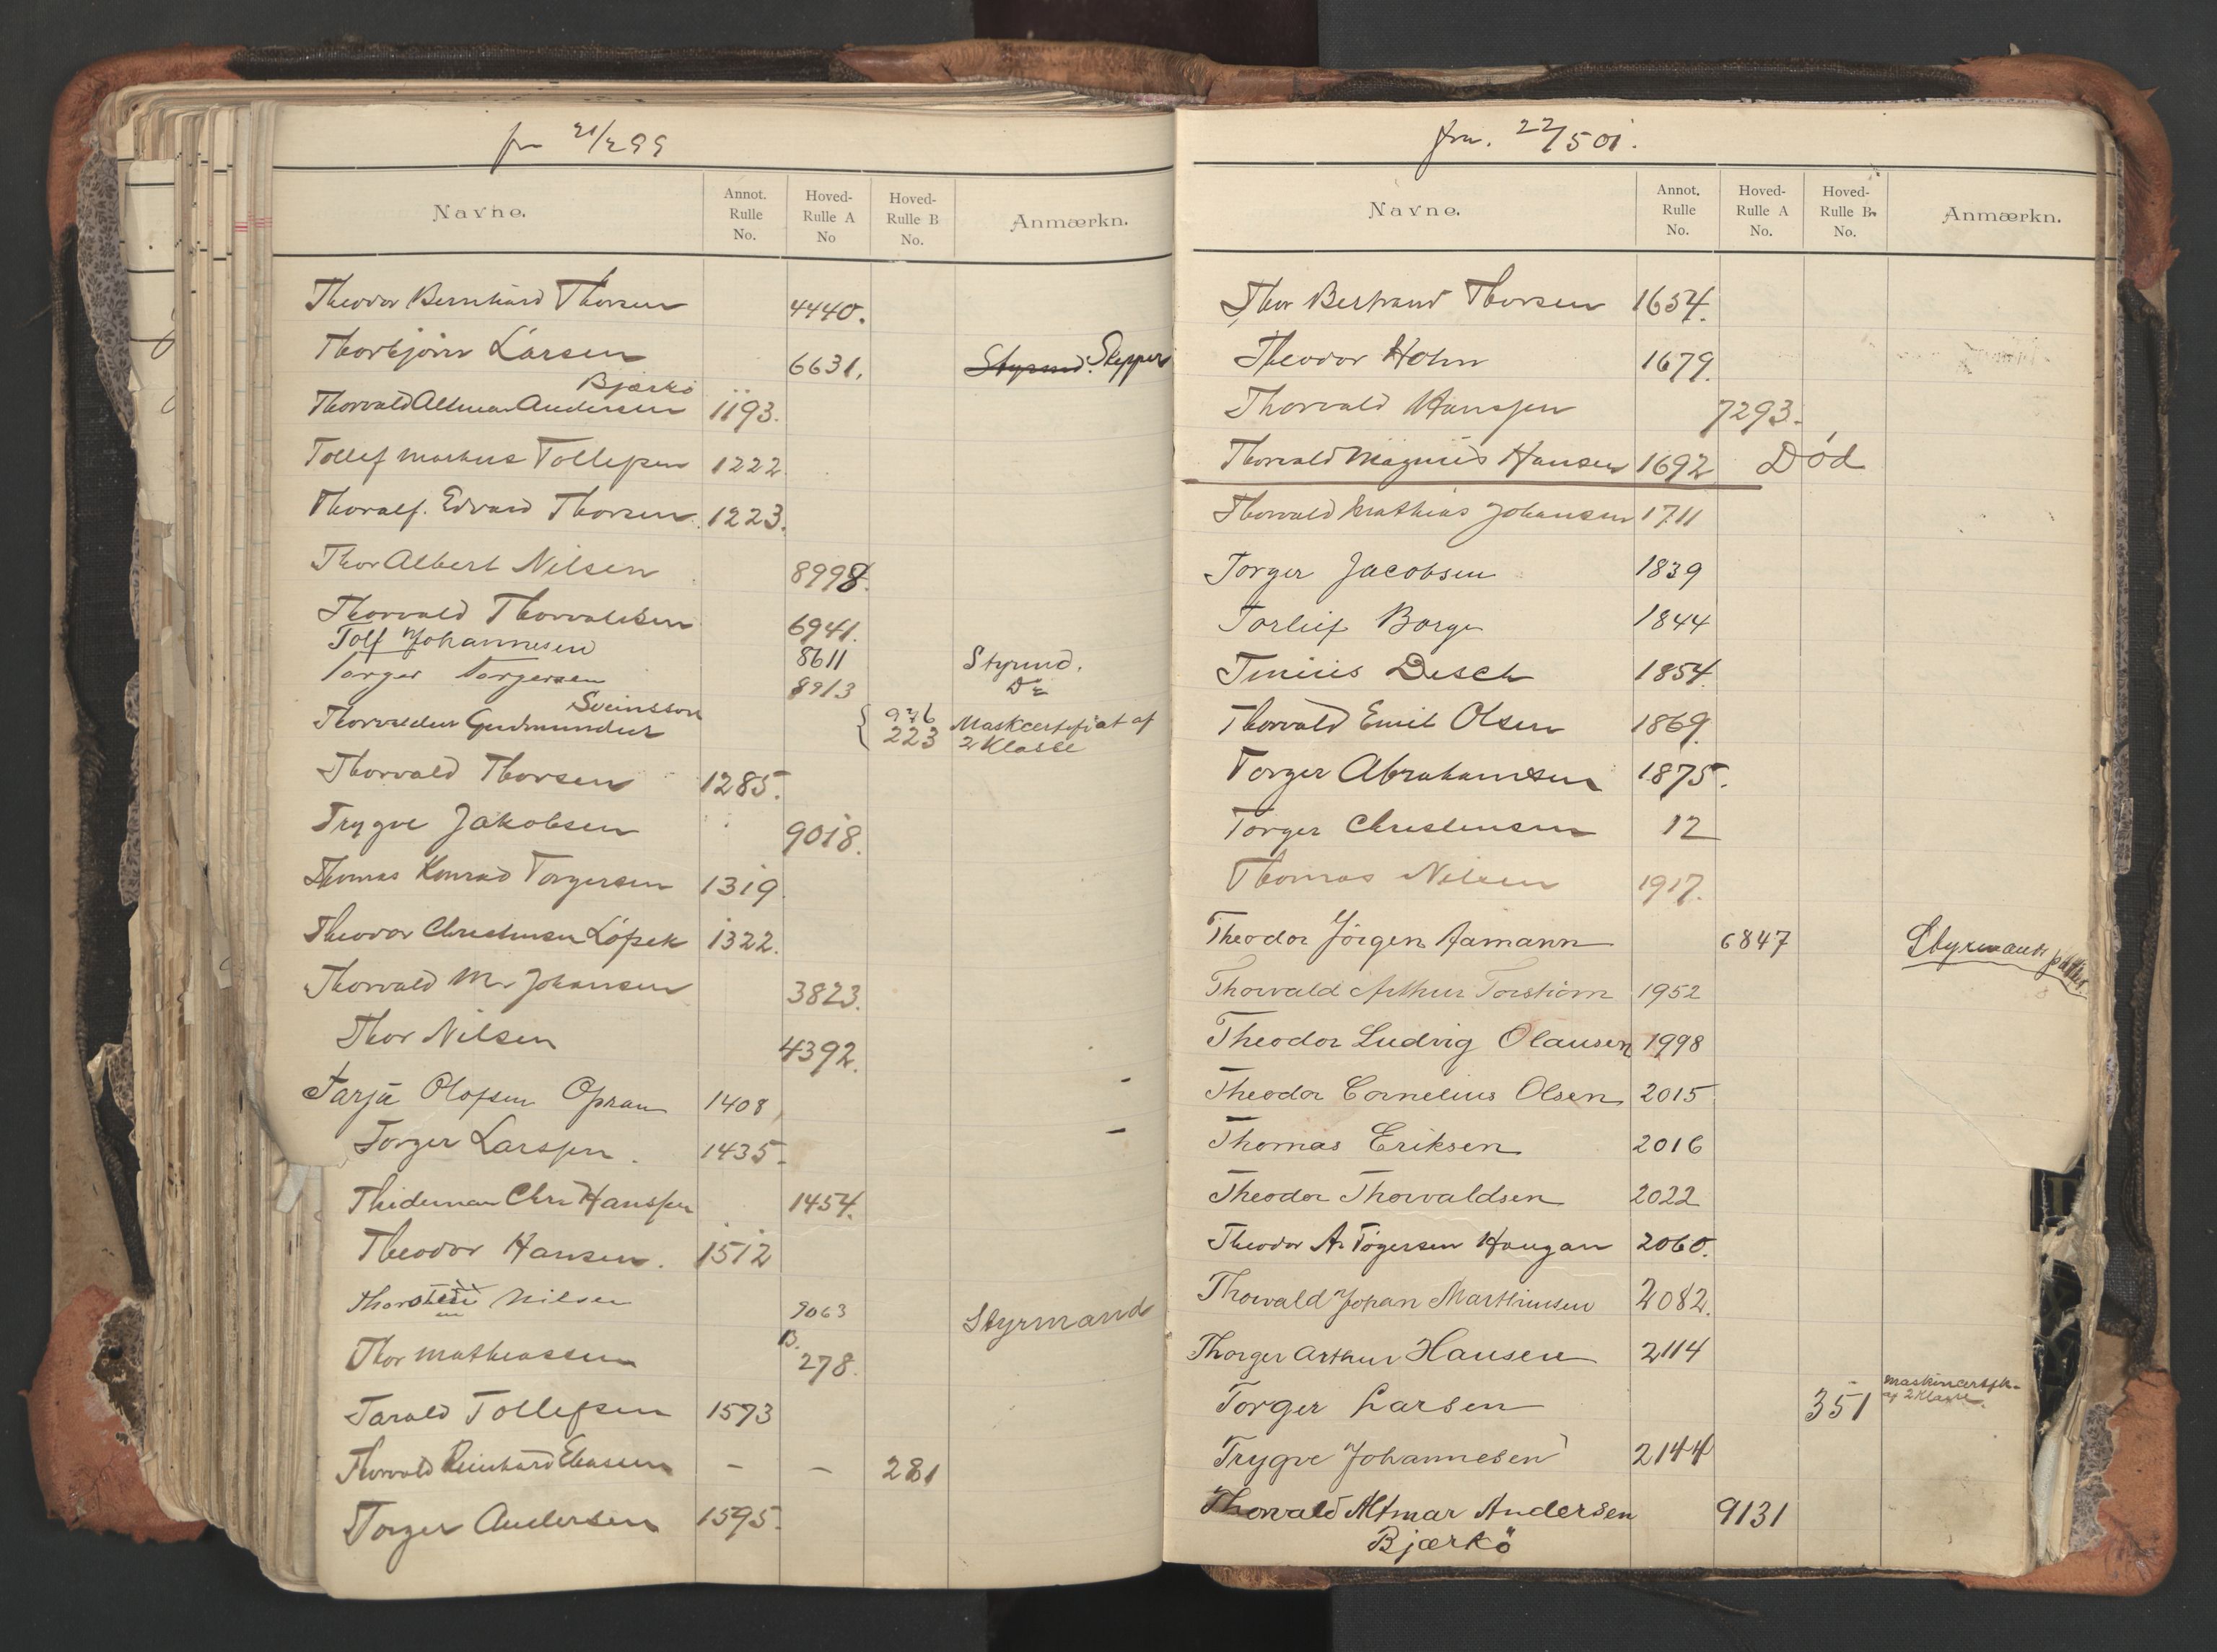 21/2 99
Navne. Annot. Rulle No. Hoved-Rulle A No Hoved-Rulle B No. Anmærkn.
Theodor Bernhard Thorsen 4440.
Thorbjörn Larsen 6631. Styrmd. Skipper
Bjærkö
Thorvald Altmar Andersen 1193.
Tollef Markus Tollefsen 1222
Thoralf. Edvard Thorsen. 1223.
Thor Albert Nilsen 8998.
Thorvald Thorvaldsen 6941.
Tolf Johannesen 8611 Styrmd.
Torger Torgersen 8913 Do
Sveinsson
Thorvaldur Gudmundur 223 Maskcertifiat af
2 Klasse
Thorvald Thorsen 1285.
Trygve Jakobsen 9018.
Thomas Konrad Torgersen 1319
Theodor Christensen 1322.
Thorvald M. Johansen 3823.
Thor Nilsen 4392.
Tarjä Olofsen 1408
Torger Larssen. 1435.
Thideman Chr. Hanssen 1454.
Theodor Hansen. 1512
Thorstein Nilsen 9063 Styrmand
Thor Mathiassen B. 278.
Tarald Tollefsen 1573
Thorvald Reinhard Eliasen - - 281
Torger Andersen 1595.
fra. 22/5 01.
Navne. Annot. Rulle No. Hoved-Rulle A No. Hoved-Rulle B. No. Anmærkn.
Thor Bertrand Thorsen 1654.
Theodor Holm 1679.
Thorvald Hanssen 7293.
Thorvald Magnus Hansen 1692 Död
Thorvald Mathias Johansen 1711
Torger Jacobsen 1839
Torleif Borge 1844
Tinius Desch 1854.
Thorvald Emil Olsen 1869.
Torger Abrahamsen 1875.
Torger Christensen 12
Thomas Nilsen 1917.
Theodor Jörgen Aamann 6847 Styrmands
Thorvald Arthur Torström 1952
Theodor Ludvig Olausen 1998
Theodor Cornelius Olsen 2015
Thomas Eriksen 2016
Theodor Thorvaldsen 2022
Theodor A. Tögersen Haugan 2060.
Thorvald Johan Marthinsen 2082.
Thorger Arthur Hansen 2114
Torger Larsen 351 Maskincertifk.
af 2 Klasse.
Trygve Johannesen 2144
Thorvald Altmar Andersen 9131
Bjærkö